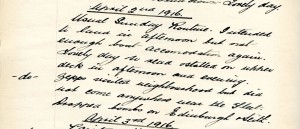 Lovely day.
April 2nd 1916.
Usual Sunday Routine. I intended
to land in afternoon but not
enough boat accomodation again.
Lovely day so read skilled on upper
deck in afternoon and evening.
-do- Zepp visited neighbourhood but did
not come anywhere near the Fleet.
Dropped bombs on Edinburgh & Leith.
April 3rd 1916.